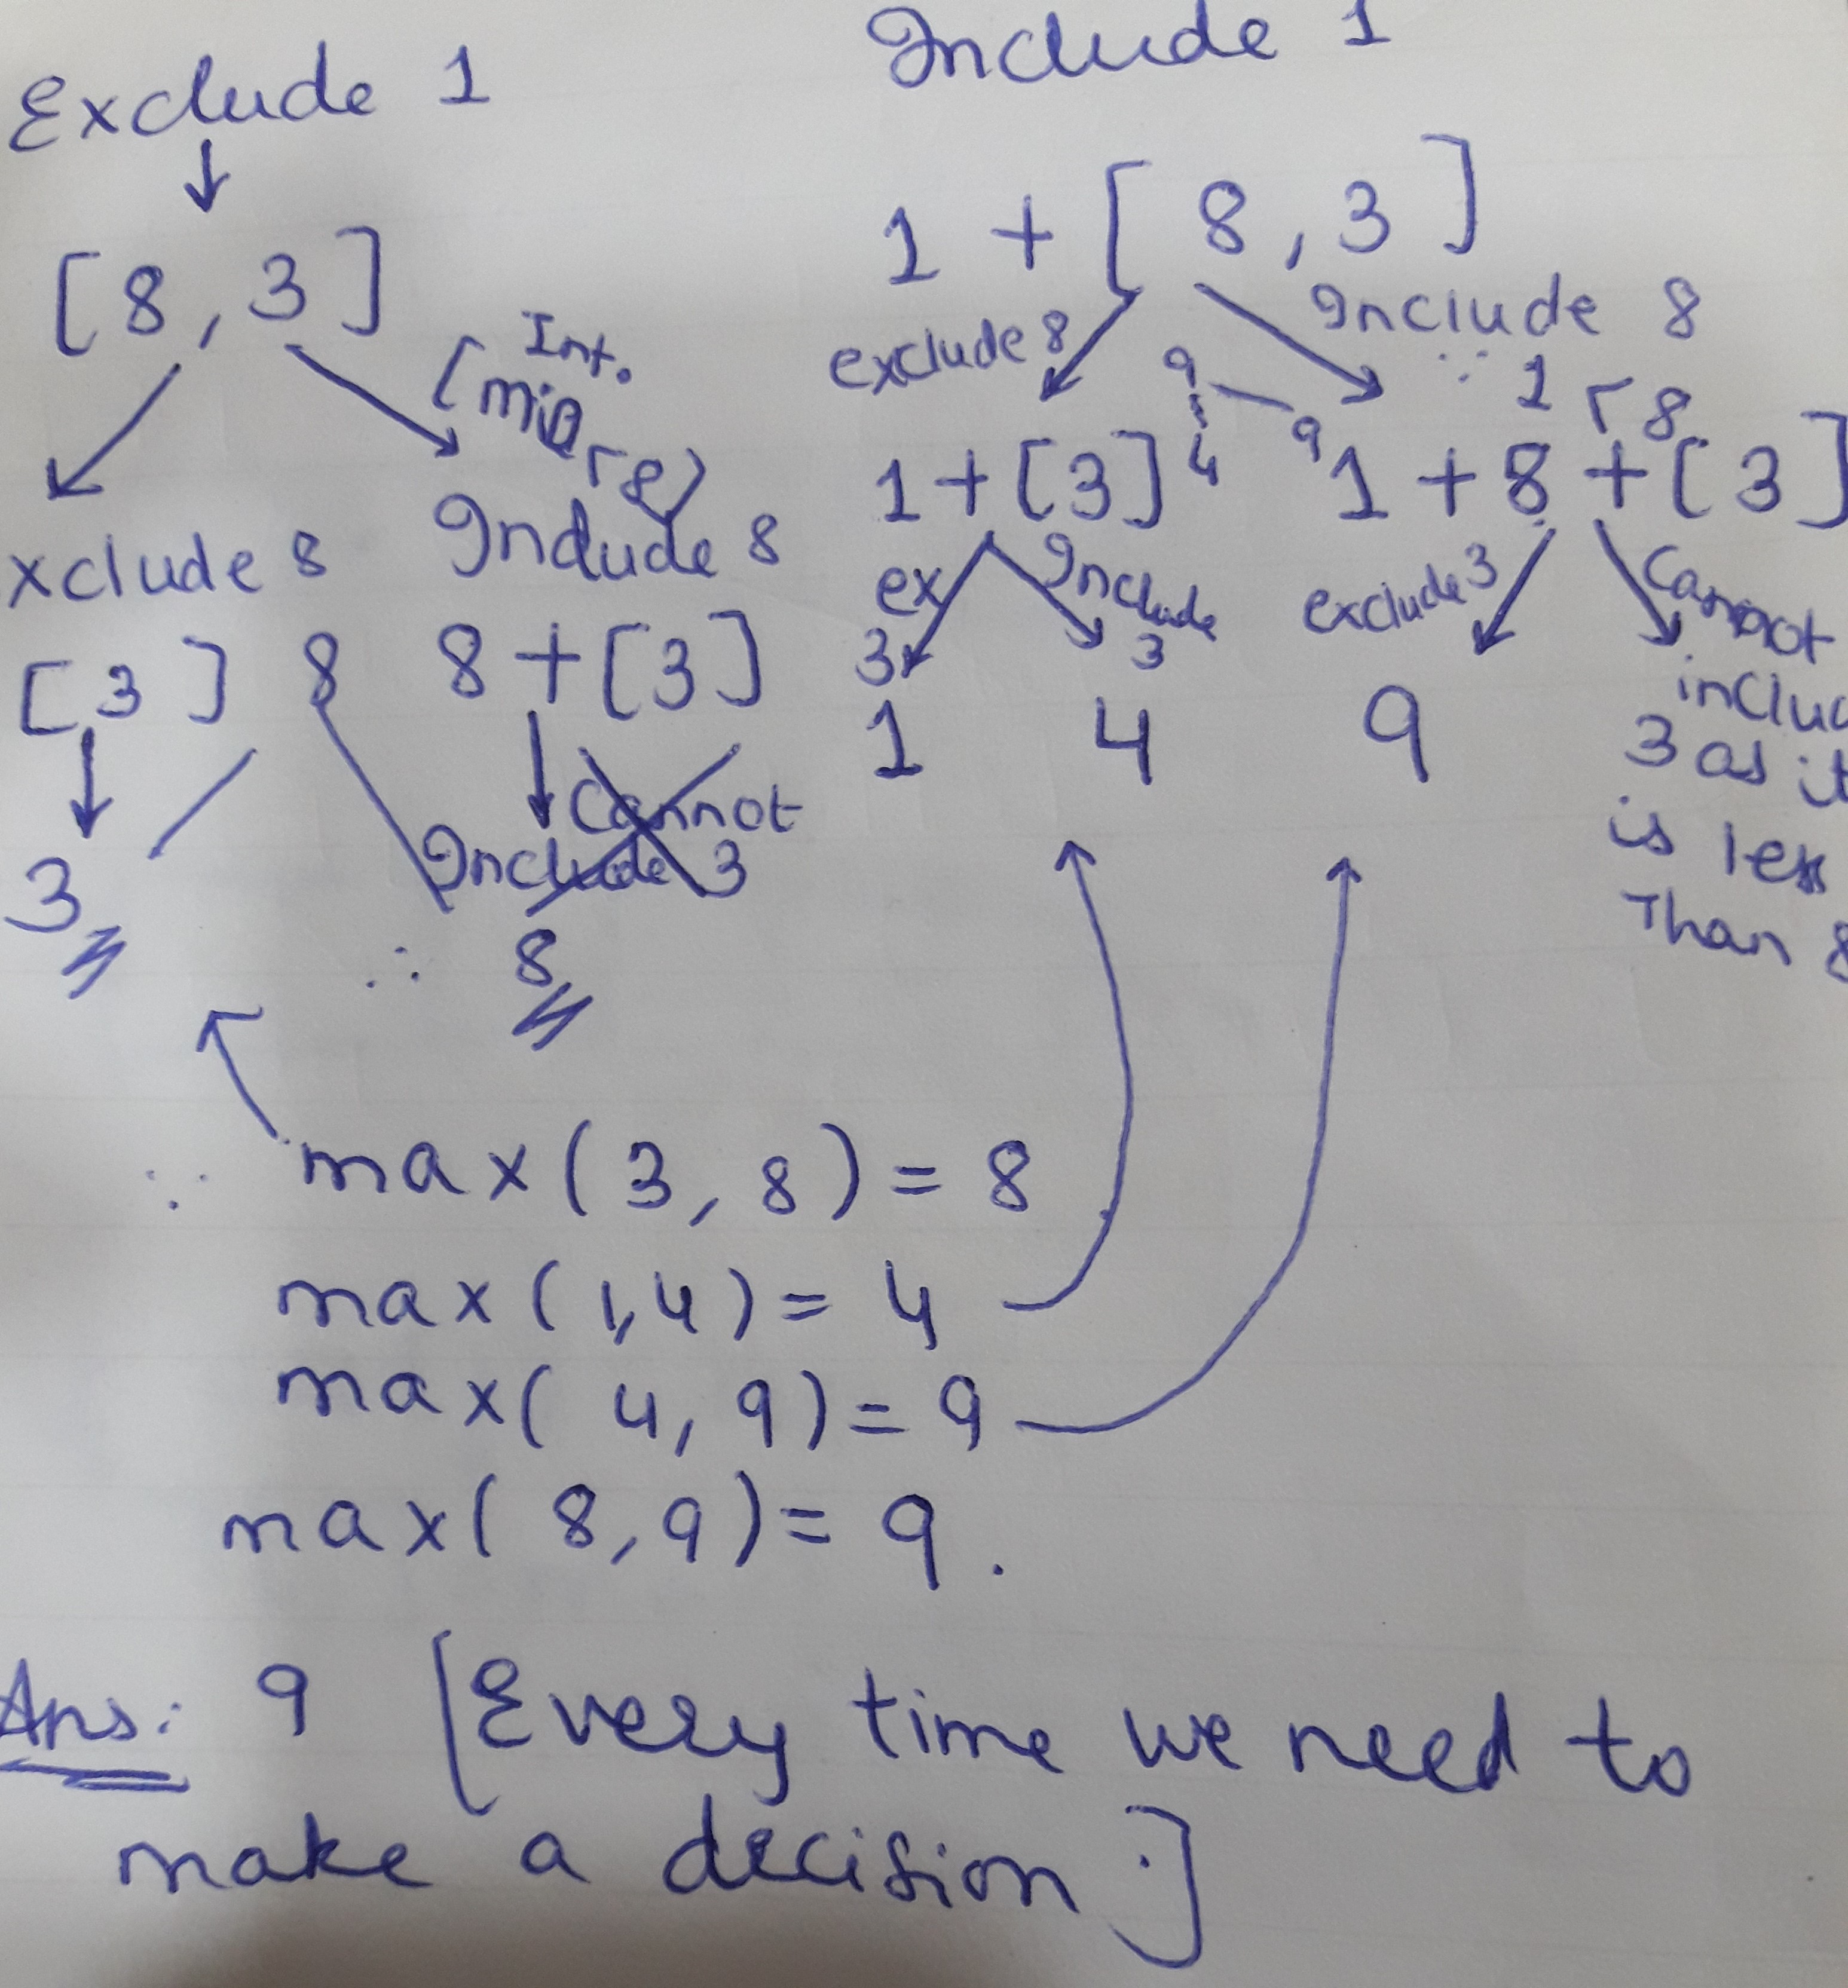 Include 1
Exclude 1
1 + [ 8, 3 ]
[ 8, 3 ]
Include 8
exclude 8
[ Int.
min
< 8)
∵ 1 < 8
9
4
9
1 + [3]
1 + 8 + [ 3 ]
xclude 8
Include 8
ex
3
Include
3
exclude 3
Cannot
includ
3 as it
is less
Than 8
[ 3 ]
8
8 + [ 3 ]
1
4
9
Cannot
Include 3
3
∴ 8
∵ max( 3, 8 ) = 8
max( 1,4 ) = 4
max( 4, 9 ) = 9
max( 8, 9 ) = 9 .
Ans: 9 [ Every time we need to
make a decision.]